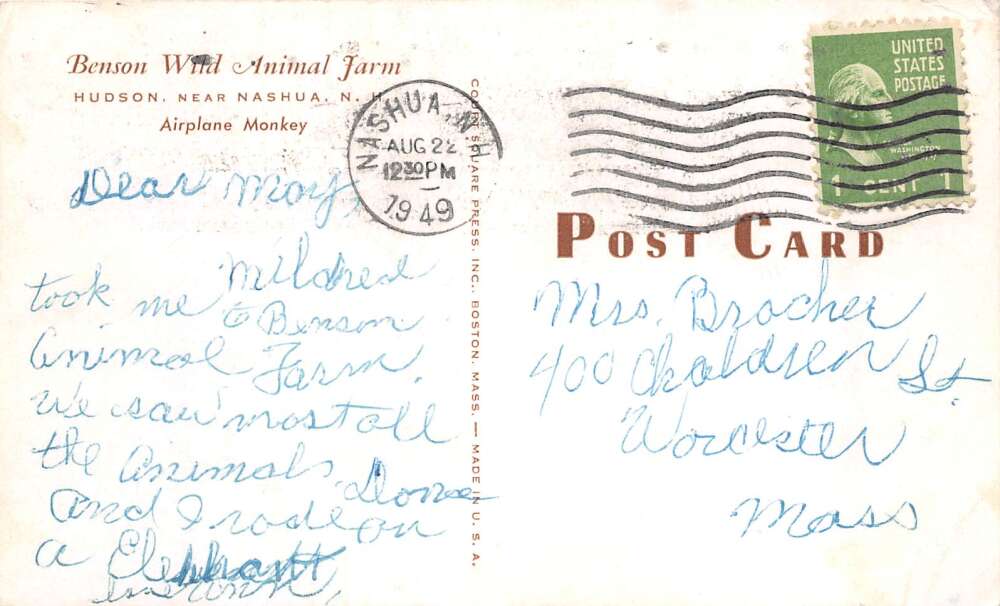 Benson Wild Animal Farm
HUDSON, NEAR NASHUA, N. H.
Airplane Monkey
NASHUA, N.H.
AUG 22
12 30 PM
1949
UNITED
STATES
POSTAGE
WASHINGTON
1 CENT 1
POST CARD
COLOR SQUARE PRESS, INC., BOSTON, MASS. — MADE IN U. S. A.
Dear May,
Mildred
took me to Benson
Animal Farm.
We saw most all
the animals.
and I rode on
a Elephant
Mrs. Brocher
400 St.
Worcester
Mass